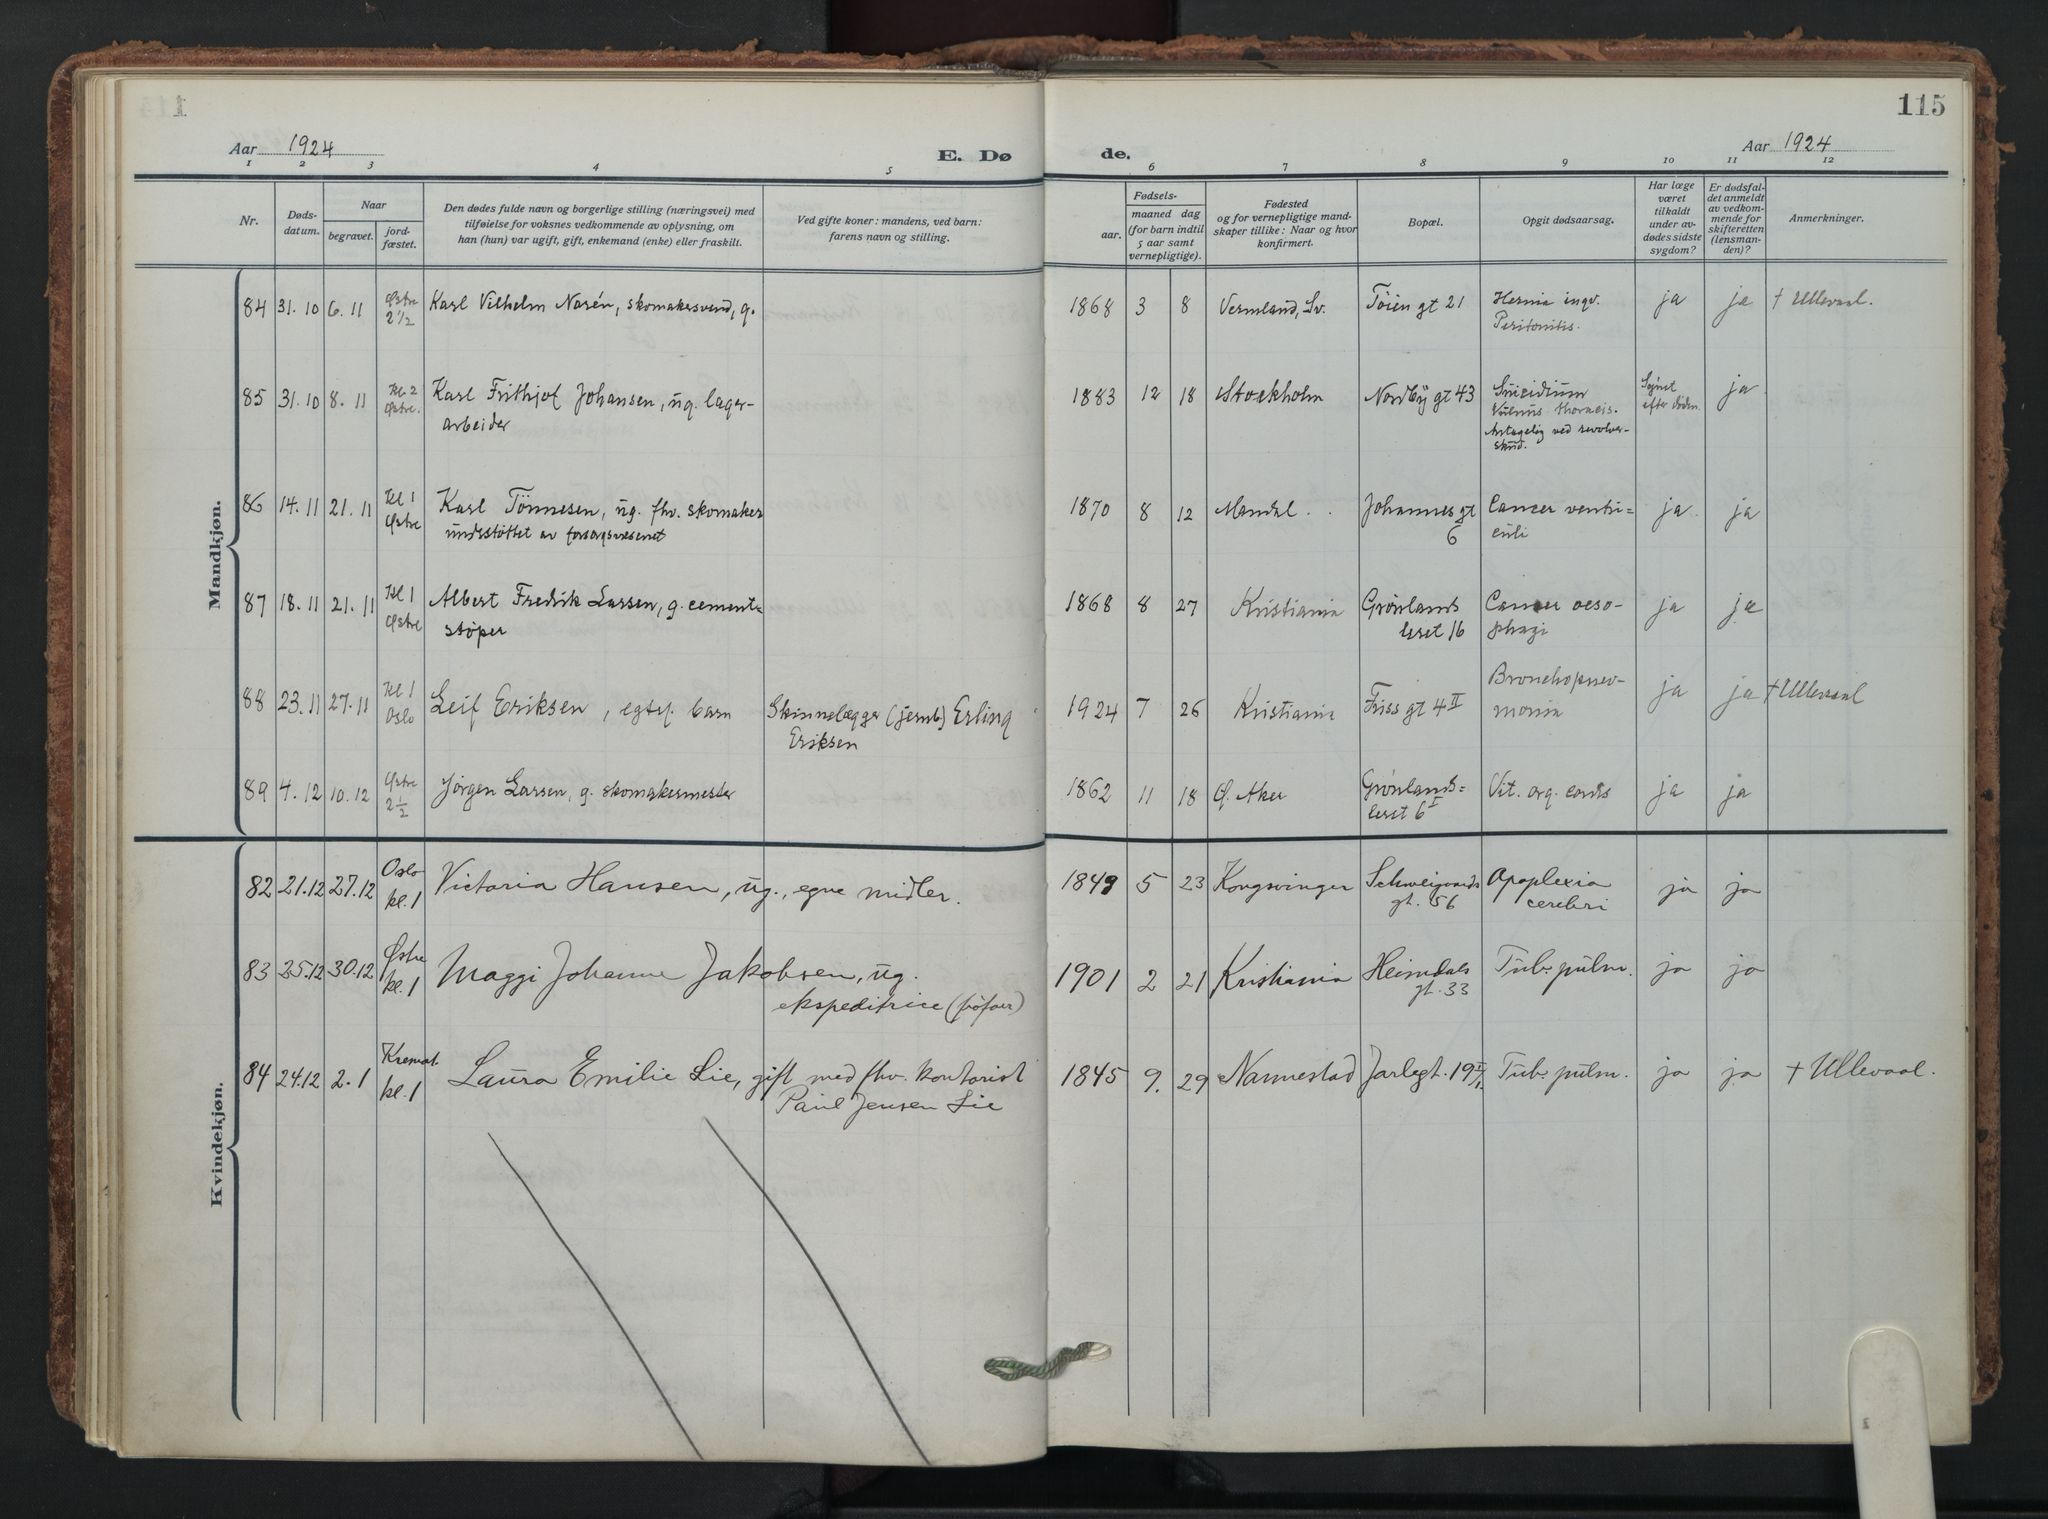 115
Aar 1924 E. Dø de. Aar 1924
1 2 3 4 5 6 7 8 9 10 11 12
Nr. Døds-datum. Naar begravet. jord-fæstet. Den dødes fulde navn og borgerlige stilling (næringsvei) med tilføielse for voksnes vedkommende av oplysning, om han (hun) var ugift, gift, enkemand (enke) eller fraskilt. Ved gifte koner: mandens, ved barn: farens navn og stilling. Fødsels- aar. maaned dag (for barn indtil 5 aar samt vernepligtige). Fødested og for vernepligtige mand-skaper tillike: Naar og hvor konfirmert. Bopæl. Opgit dødsaarsag. Har læge været tilkaldt under av-dødes sidste sygdom? Er dødsfal-det anmeldt av vedkom-mende for skifteretten (lensman-den)? Anmerkninger.
Mandkjøn.
84 31.10 6.11 Østre 2 1/2 Karl Vilhelm Norén, skomakersvend, g. 1868 3 8 Vermland, Sv. Tøien gt 21 Hernia ingv. Peritonitis. ja ja † Ullevaal.
85 31.10 8.11 Kl 2 Østre. Karl Frithjof Johansen, ug. lager-
arbeider 1883 12 18 Stockholm Nordby gt 43 Suicidium Vulnus thoracis. Antagelig ved revolver-skud. Synet efter døden ja
86 14.11 21.11 Kl 1 Østre Karl Tönnesen, ug. fhv. skomaker
understøttet av forsorgsvesenet 1870 8 12 Mandal . . Johannes gt 6 Cancer ventri-culi ja. ja
87 18.11 21.11 Kl 1 Østre Albert Fredrik Larsen, g. cement=
støper 1868 8 27 Kristiania Grønlands leret 16 Cancer oeso-phagi ja ja
88 23.11 27.11 Kl 1 Oslo Leif Eriksen, egtef. barn Skinnelægger (jernb) Erling
Eriksen 1924 7 26 Kristiania Friss gt 4 II Bronchopnev-monia ja ja † Ullevaal
89 4.12 10.12 Østre 2 1/2 Jørgen Larsen, g. skomakermester 1862 11 18 Ø. Aker Grønlands=leret 6 I Vit. org. cordis ja ja
Kvindekjøn.
82 21.12 27.12 Oslo kl. 1 Victoria Hansen, ug., egne midler. 1849 5 23 Kongsvinger Schweigaards gt. 56 Apoplexia cerebri ja ja
83 25.12 30.12 Østre kl. 1 Maggi Johanne Jakobsen, ug.
ekspeditrice 1901 2 21 Kristiania Heimdals gt. 33 Tub. pulm. ja ja
84 24.12 2.1 Kremat. kl. 1 Laura Emilie Lie, gift med fhv. kontorist
Paul Jensen Lie 1845 9. 29 Nannestad Jarlegt. 19 Tub. pulm. ja ja † Ullevaal.